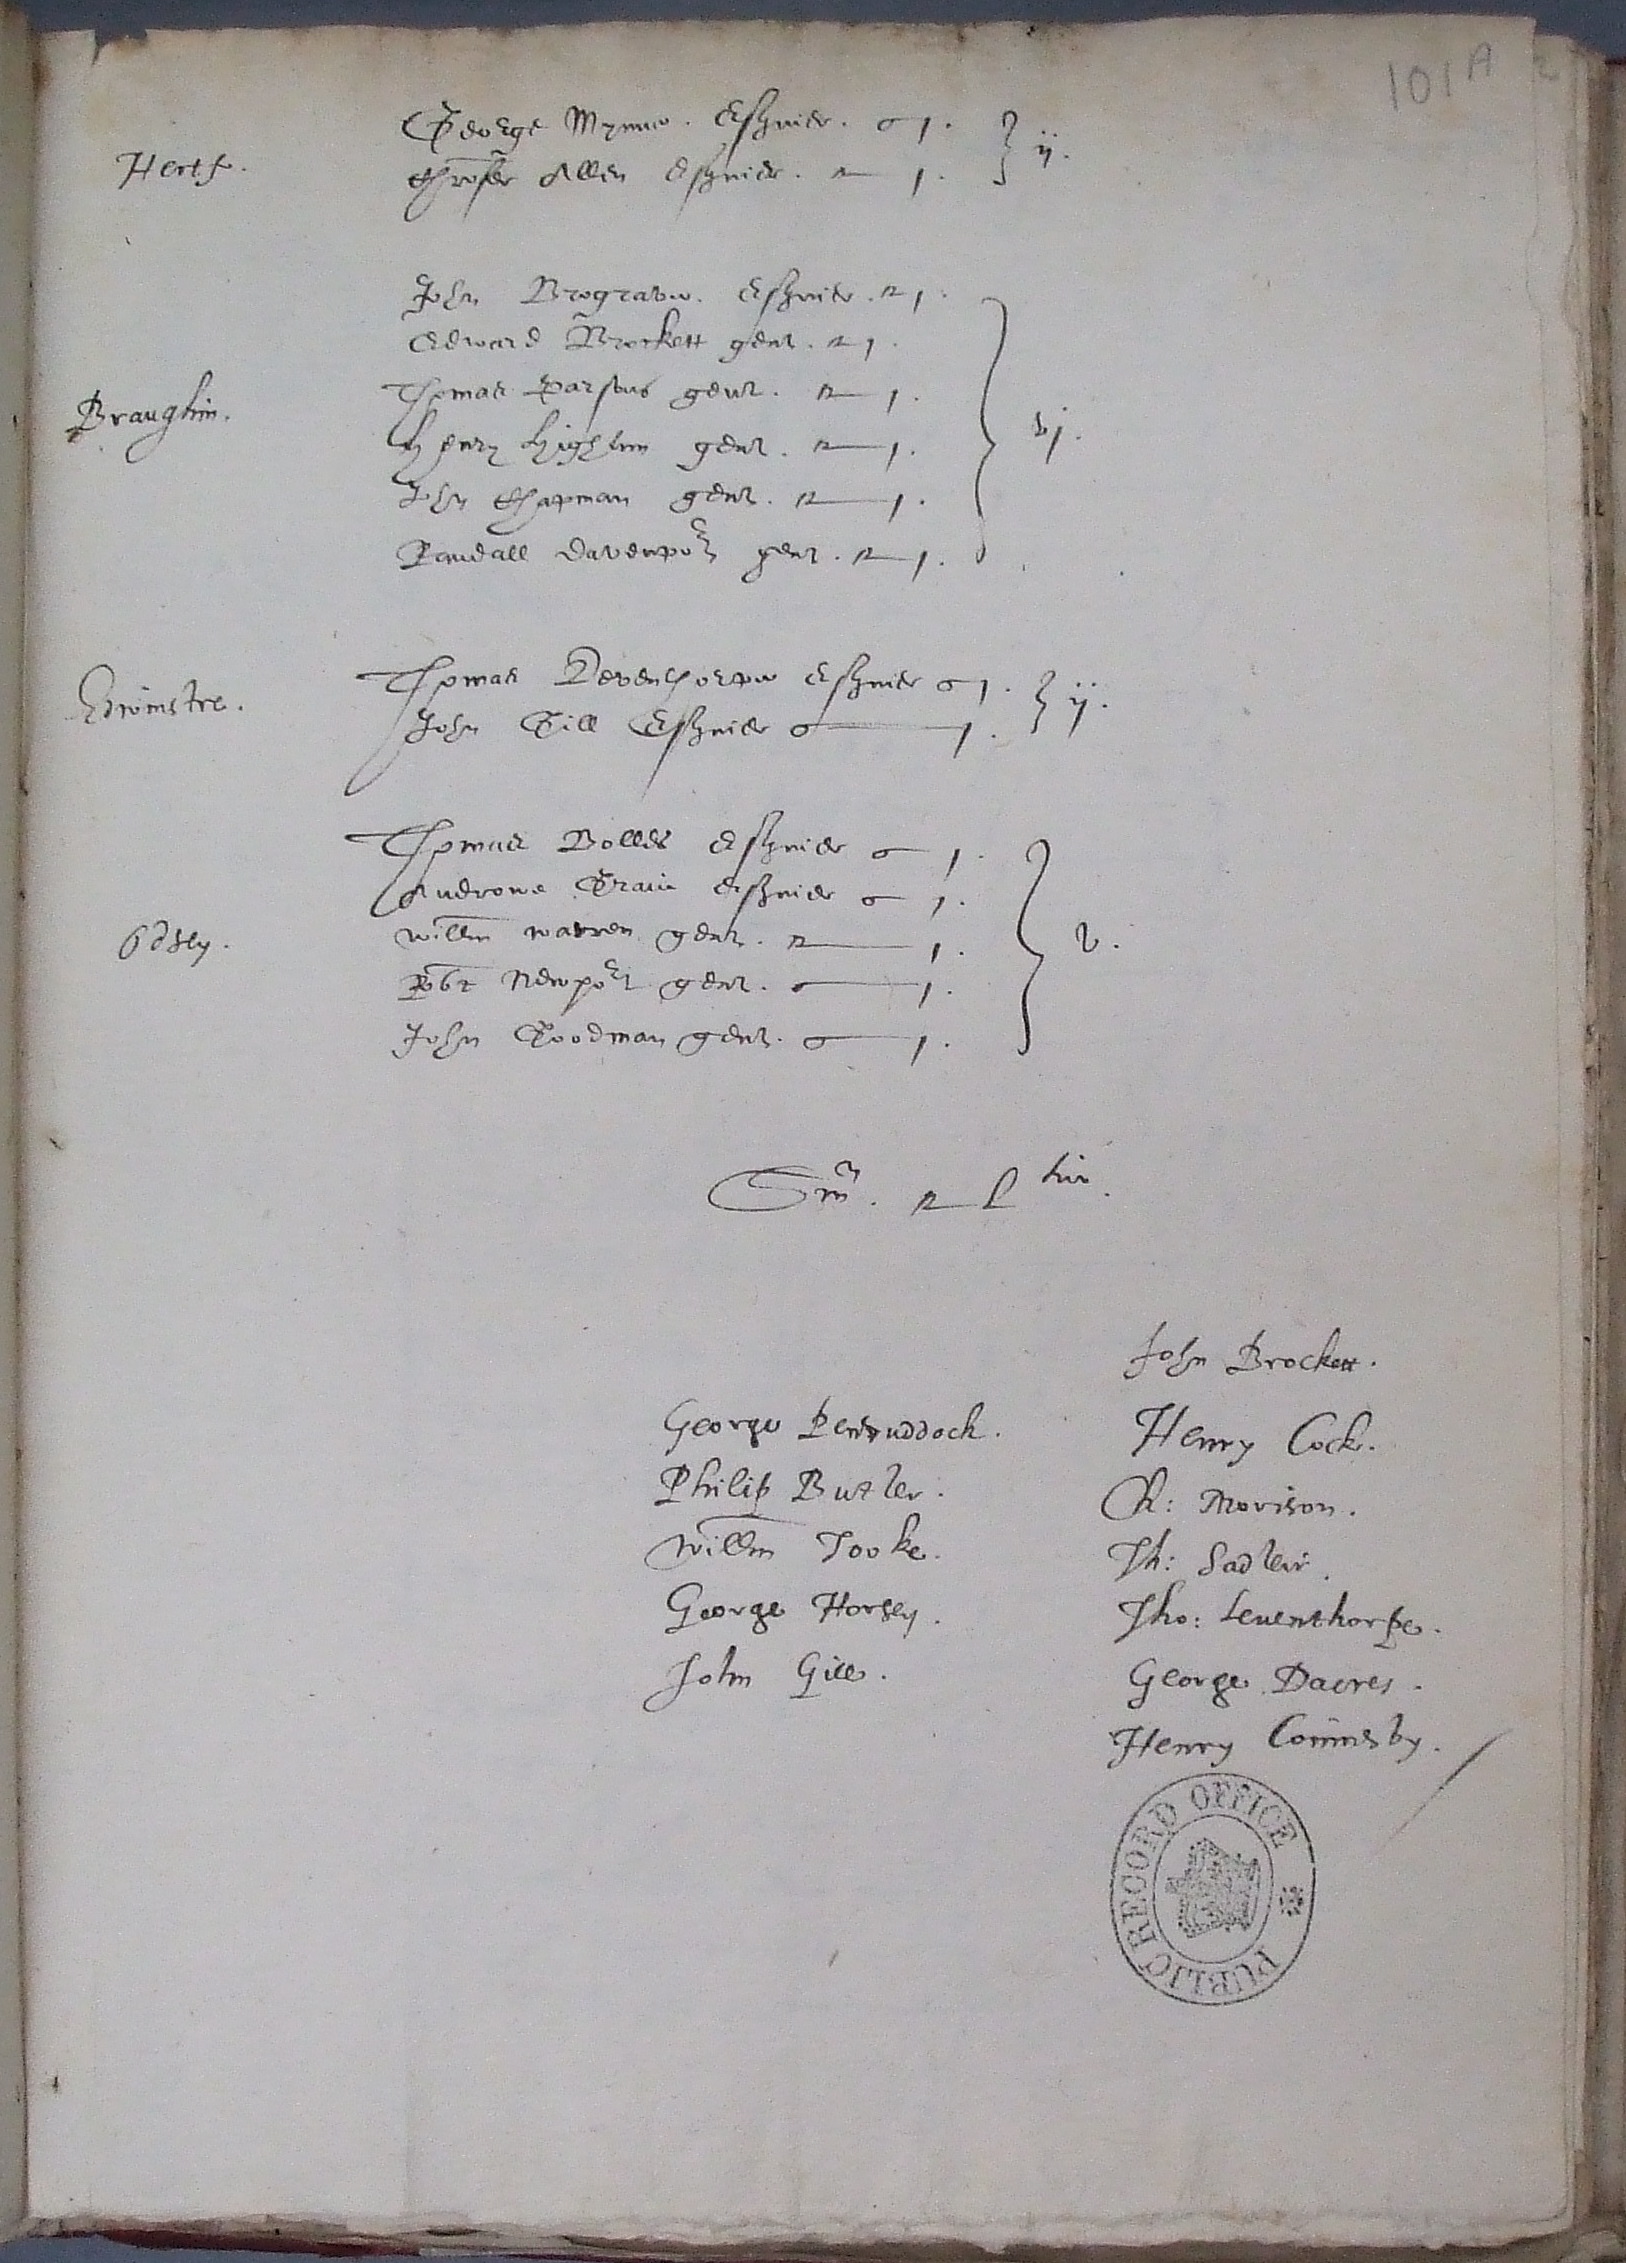 101 A
George Mynne . Esquier . j . } ij .
Hertf .
Chrofer Allen Esquier . j .
John Brograve . Esquier . j .
Edward Brockett gent . j .
Thomas Parsons gent . j .
Braughin . } vj .
Henry Higham gent . j .
John Chapman gent . j .
Randall Davenport gent . j .
Edwinstre .
Thomas Leventhorpe Esquier j . } ij .
John Gill Esquier j .
Thomas Bolles Esquier j .
Androwe Graie Esquier j .
Odsey .
Willm Warren gent . j . } v .
Robt Newport gent . j .
John Goodman gent . j .
Sm . liiij
John Brockett .
George Penruddock . Henry Cock .
Philip Butler . Ch : Morison .
Willm Tooke . Th : Sadleir .
George Horsey . Tho : Leventhorpe .
John Gill . George Dacres .
Henry Coninesby .
PUBLIC RECORD OFFICE